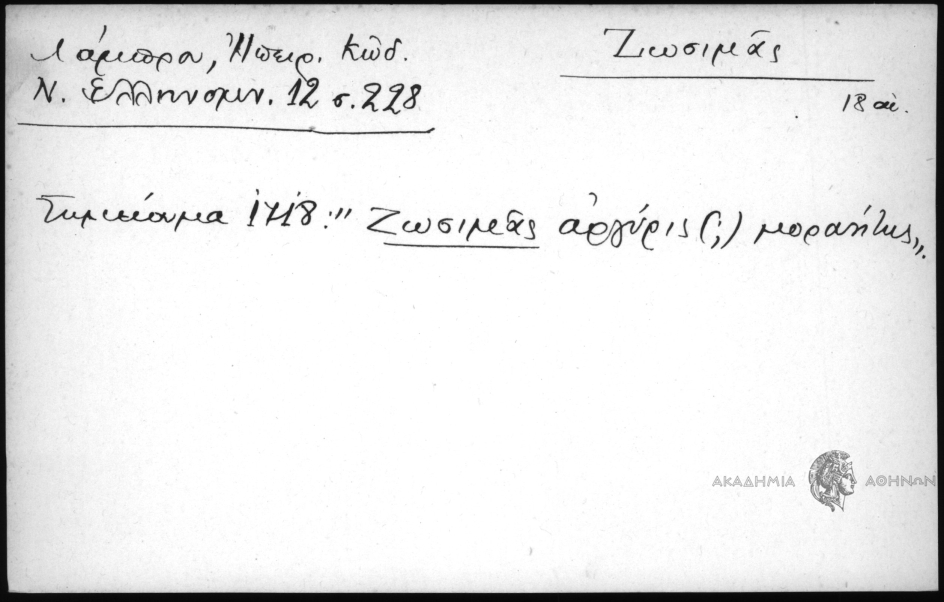 Λάμπρου, Ἠπειρ. Κῶδ.
Ν. Ἑλληνομν. 12 σ. 228
Ζωσιμᾶς
18 αἰ.
Σημείωμα 1718: "Ζωσιμᾶς ἀργύρις (;) μοραΐτης".
ΑΚΑΔΗΜΙΑ ΑΘΗΝΩΝ